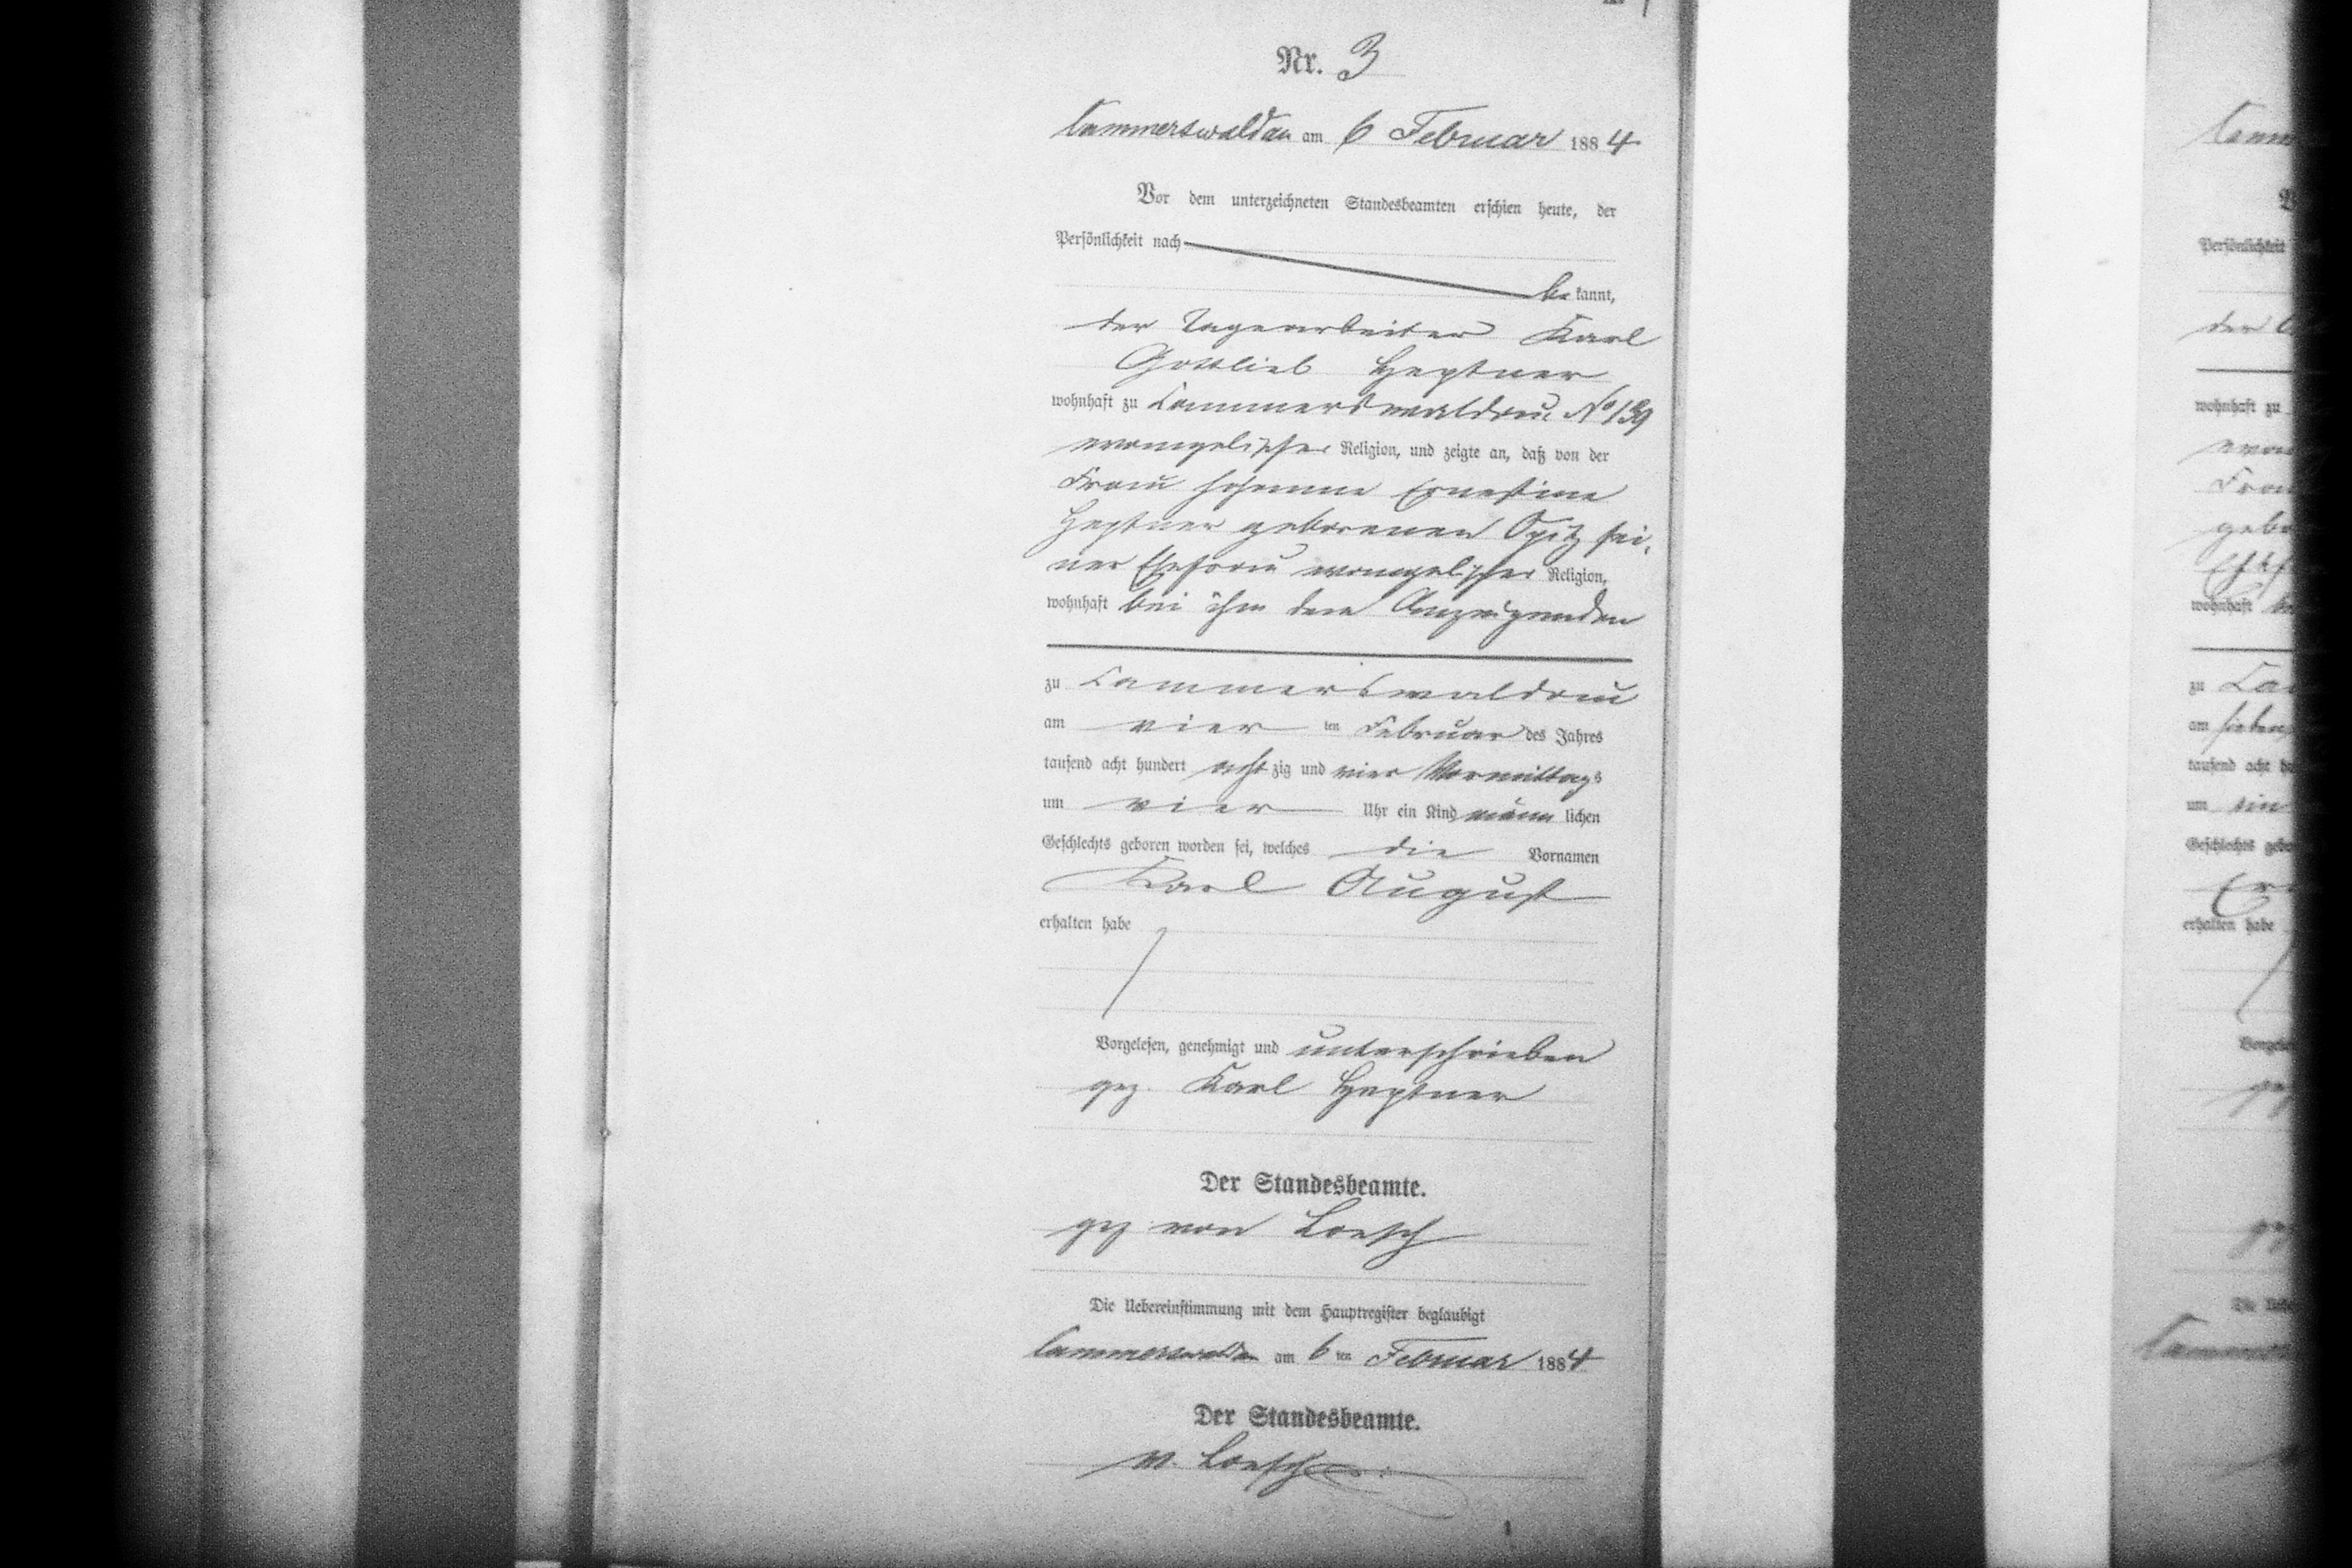 Nr. 3
Cammerswaldau am 6 Februar 1884
Vor dem unterzeichneten Standesbeamten erschien heute, der
Persönlichkeit nach
be kannt,
der Tagearbeiter Karl
Gottlieb Heptner
wohnhaft zu Cammerswaldau No 139
evangelischer Religion, und zeigte an, daß von der
Frau Johanne Ernestine
Heptner geborenen Opitz sei-
ner Ehefrau evangelischer Religion,
wohnhaft bei ihm dem Anzeigenden
zu Cammerswaldau
am vier ten Februar des Jahres
tausend acht hundert acht zig und vier Vormittags
um vier Uhr ein Kind männ lichen
Geschlechts geboren worden sei, welches die Vornamen
Karl August
erhalten habe
Vorgelesen, genehmigt und unterschrieben
gez. Karl Heptner
Der Standesbeamte.
gez von Loesch
Die Uebereinstimmung mit dem Hauptregister beglaubigt
Cammerswaldau am 6 ten Februar 1884
Der Standesbeamte.
v. Loesch